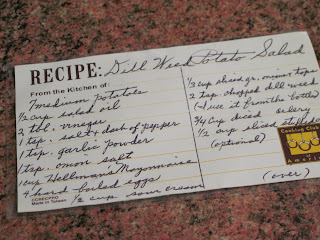 RECIPE: Dill Weed Potato Salad
From the Kitchen of:
7 medium potatoes
1/2 cup salad oil
2 tbl. vinegar
1 tsp. salt + dash of pepper
1 tsp. garlic powder
1 tsp. onion salt
1 cup Hellman's Mayonnaise
4 hard-boiled eggs
1/2 cup sour cream
CCRECPPO
Made in Taiwan
1/3 cup sliced gr. onion + tops
2 tsp. chopped dill weed
(I use it from the bottle)
3/4 cup diced celery
1/2 cup sliced
(optional)
(over)
Cooking Club
of
America